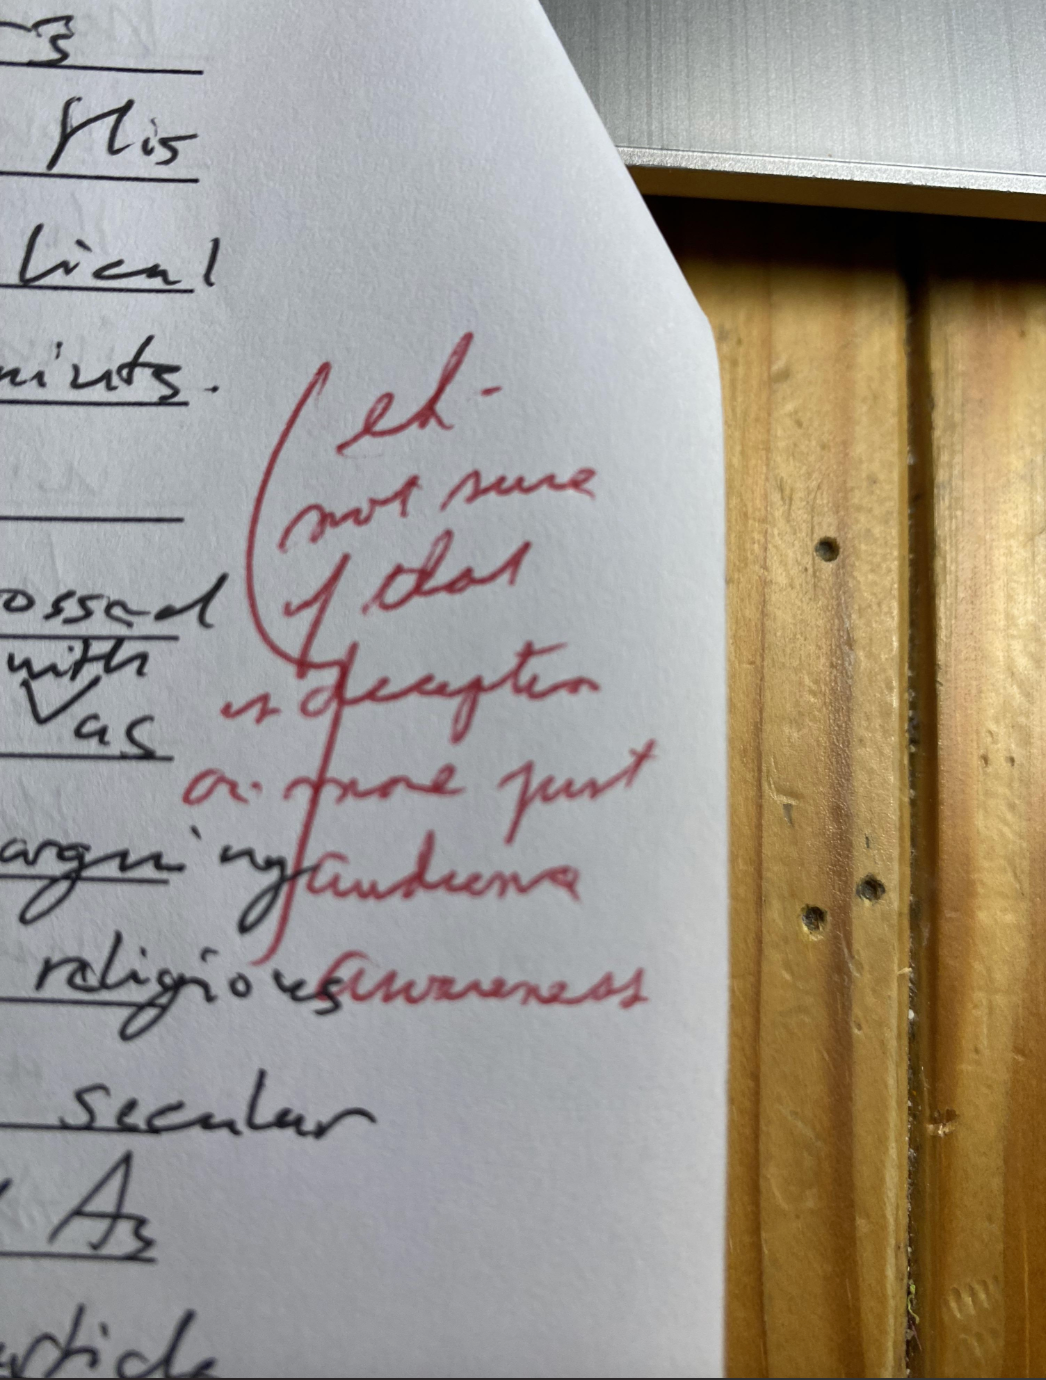 this
lical
eh-
not sure
if that
ossed
with
is deception
as
or more just
arguing
audience
religious
awareness
secular
As
article